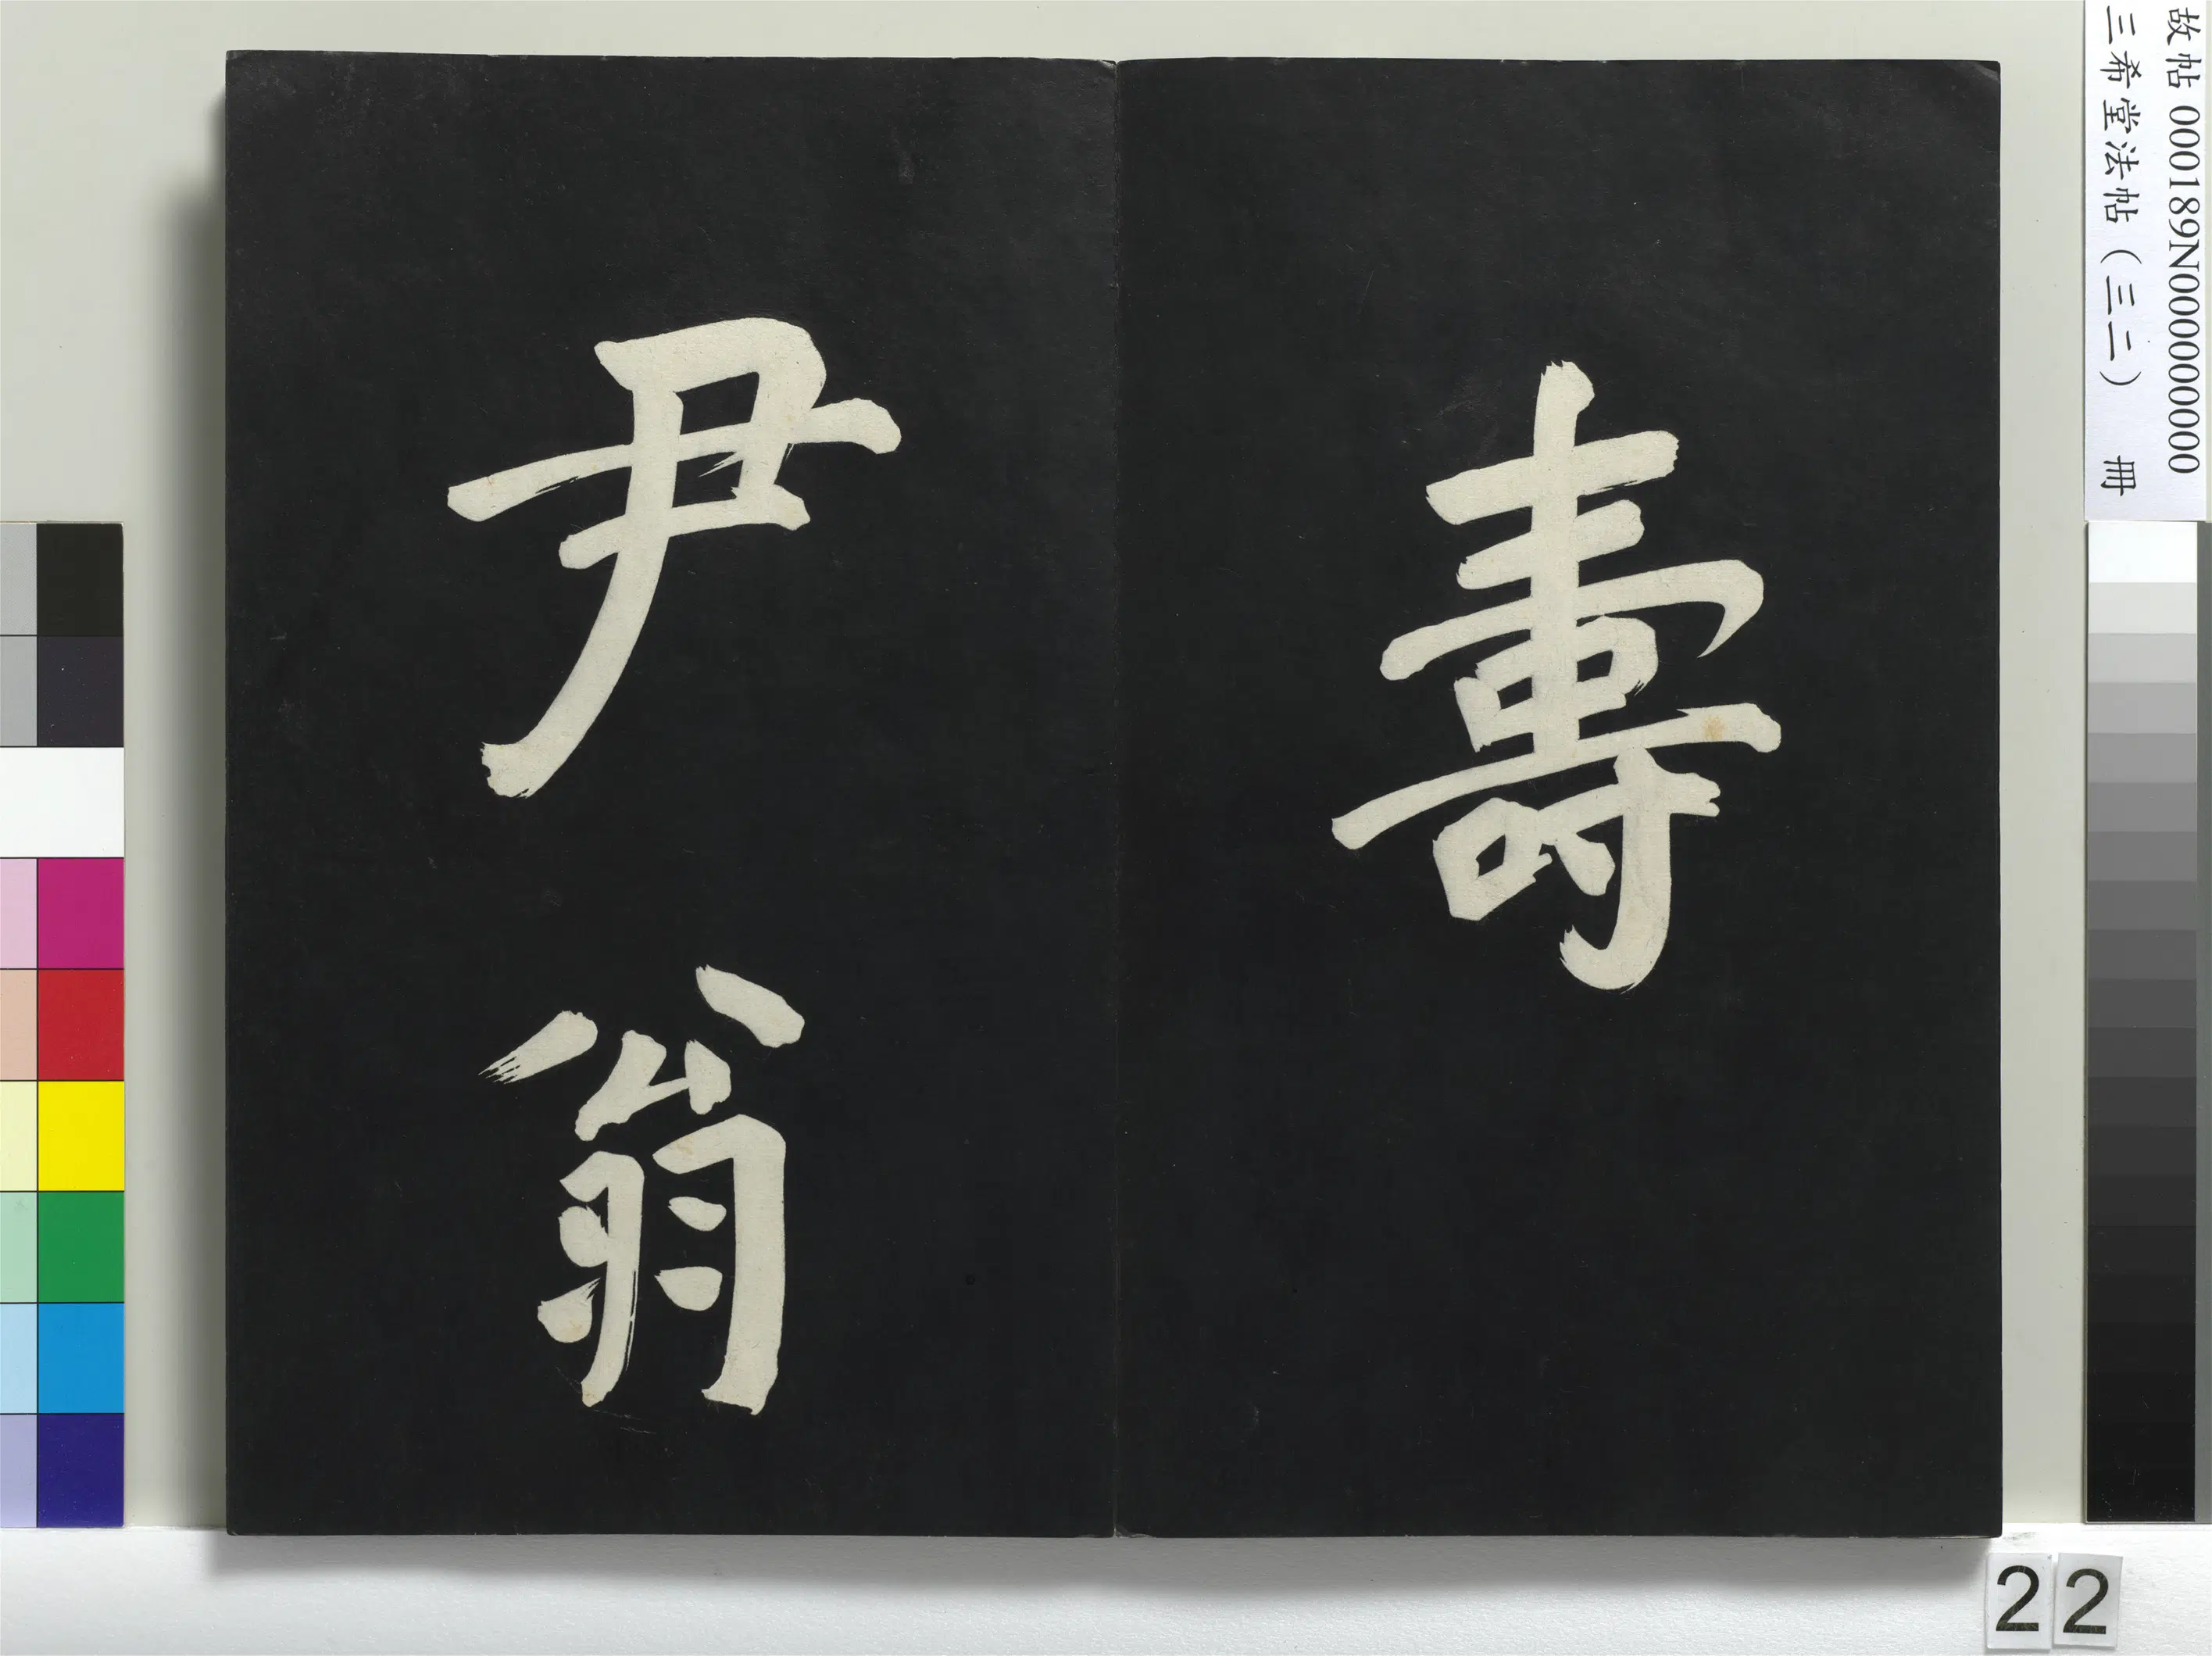 壽
尹翁
故帖 000189N000000000
三希堂法帖（三二） 冊
22